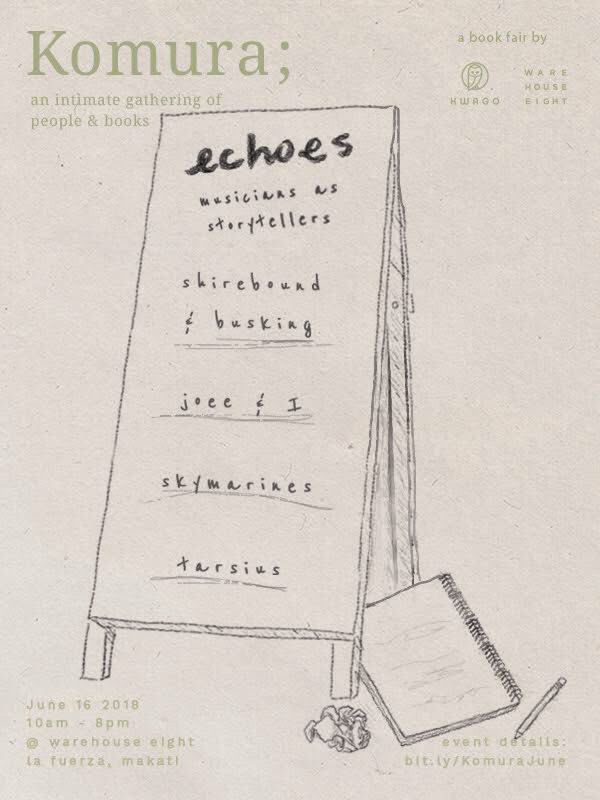 Komura;
an intimate gathering of
people & books
a book fair by
KWAGO
WARE
HOUSE
EIGHT
echoes
musicians as
storytellers
shirebound
& busking
joee & I
skymarines
tarsius
June 16 2018
10am - 8pm
@ warehouse eight
la fuerza, makati
event details:
bit.ly/KomuraJune